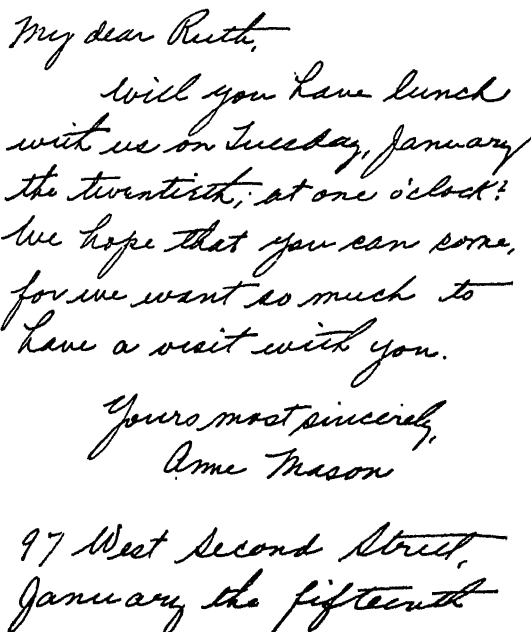 My dear Ruth,
Will you have lunch
with us on Tuesday, January
the twentieth, at one o'clock?
We hope that you can come,
for we want so much to
have a visit with you.
Yours most sincerely,
Anne Mason
97 West Second Street,
January the fifteenth